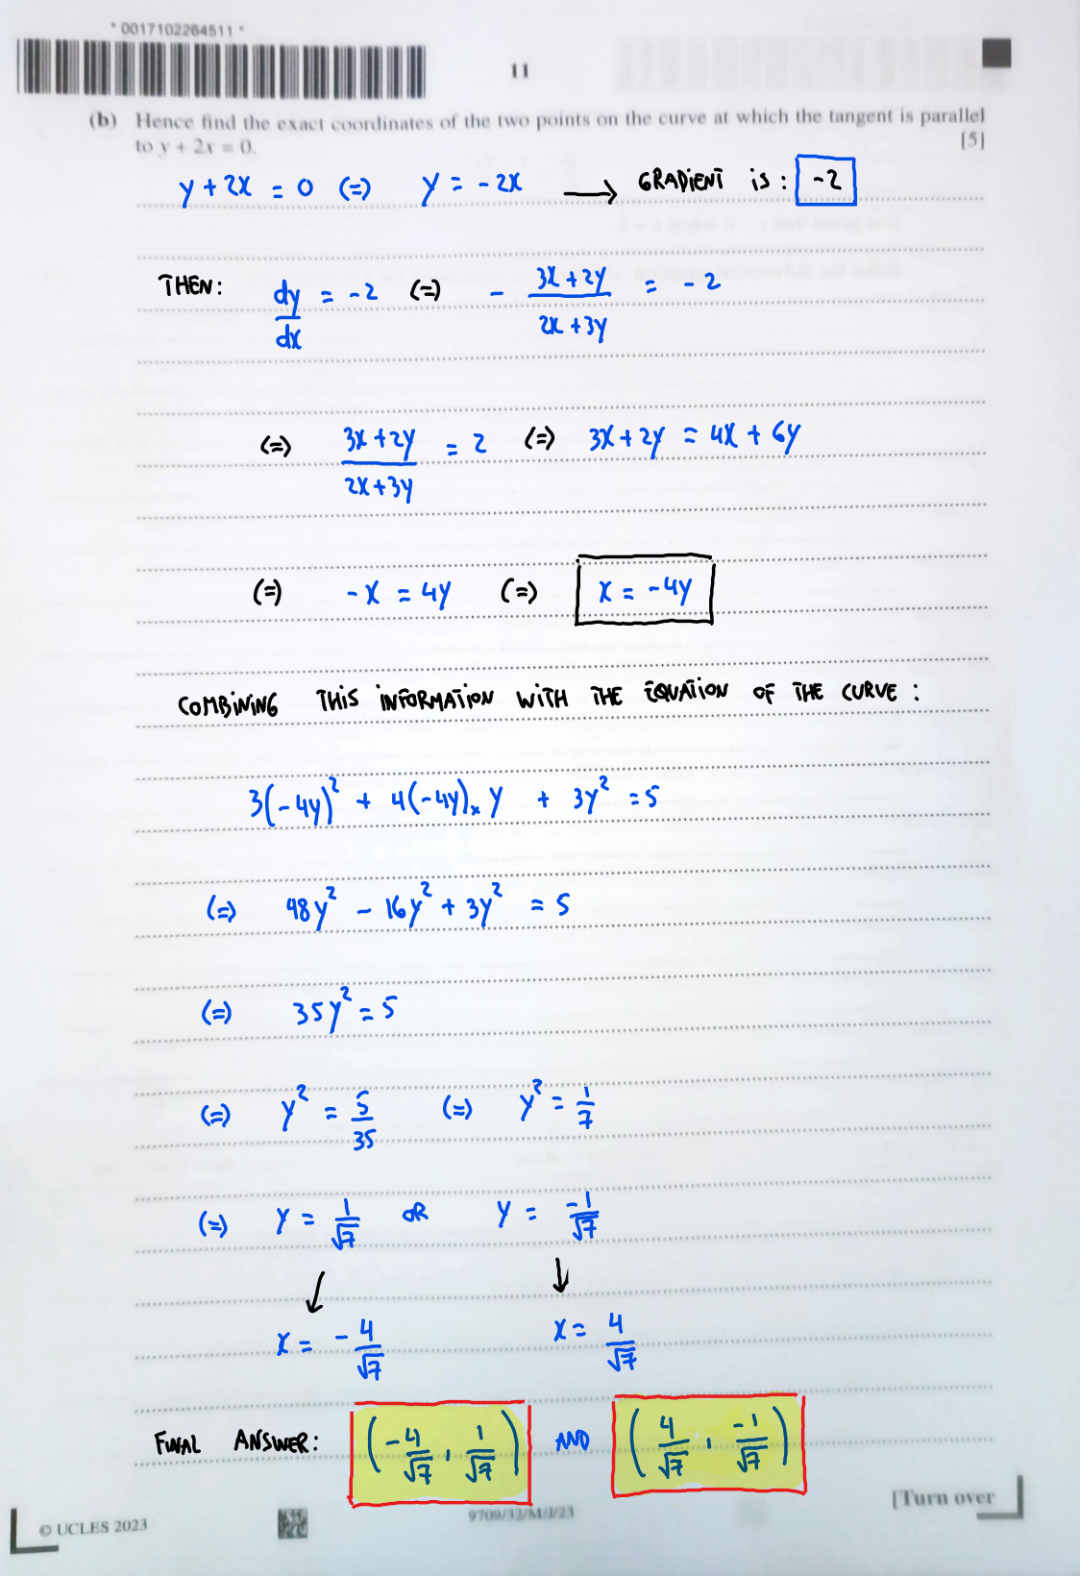 * 0017102264511 *
11
(b) Hence find the exact coordinates of the two points on the curve at which the tangent is parallel
to y + 2x = 0. [5]
y + 2x = 0 (=) y = -2x → GRADIENT is : -2
THEN: dy/dx = -2 (=) - (3x + 2y)/(2x + 3y) = -2
(=) (3x + 2y)/(2x + 3y) = 2 (=) 3x + 2y = 4x + 6y
(=) -x = 4y (=) x = -4y
COMBINING THIS INFORMATION WITH THE EQUATION OF THE CURVE :
3(-4y)² + 4(-4y)×y + 3y² = 5
(=) 48y² - 16y² + 3y² = 5
(=) 35y² = 5
(=) y² = 5/35 (=) y² = 1/7
(=) y = 1/√7 OR y = -1/√7
↙ ↓
x = -4/√7 x = 4/√7
FINAL ANSWER: (-4/√7 , 1/√7) AND (4/√7 , -1/√7)
[Turn over
© UCLES 2023 9709/32/M/J/23